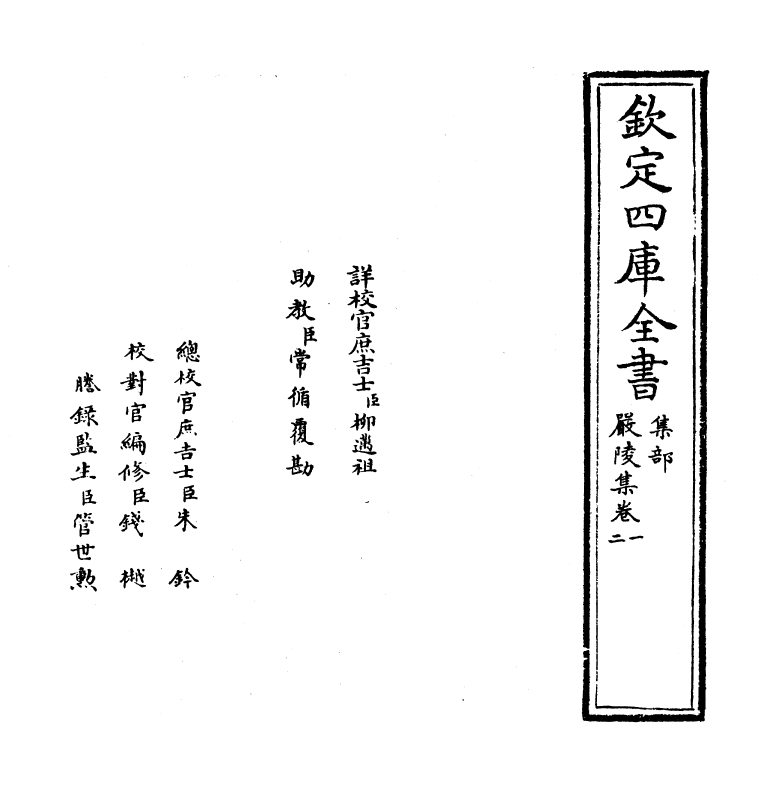 欽定四庫全書
集部
嚴陵集卷一
二
詳校官庶吉士臣柳邁祖
助教臣常循覆勘
總校官庶吉士臣朱鈐
校對官編修臣錢樾
謄錄監生臣管世勲